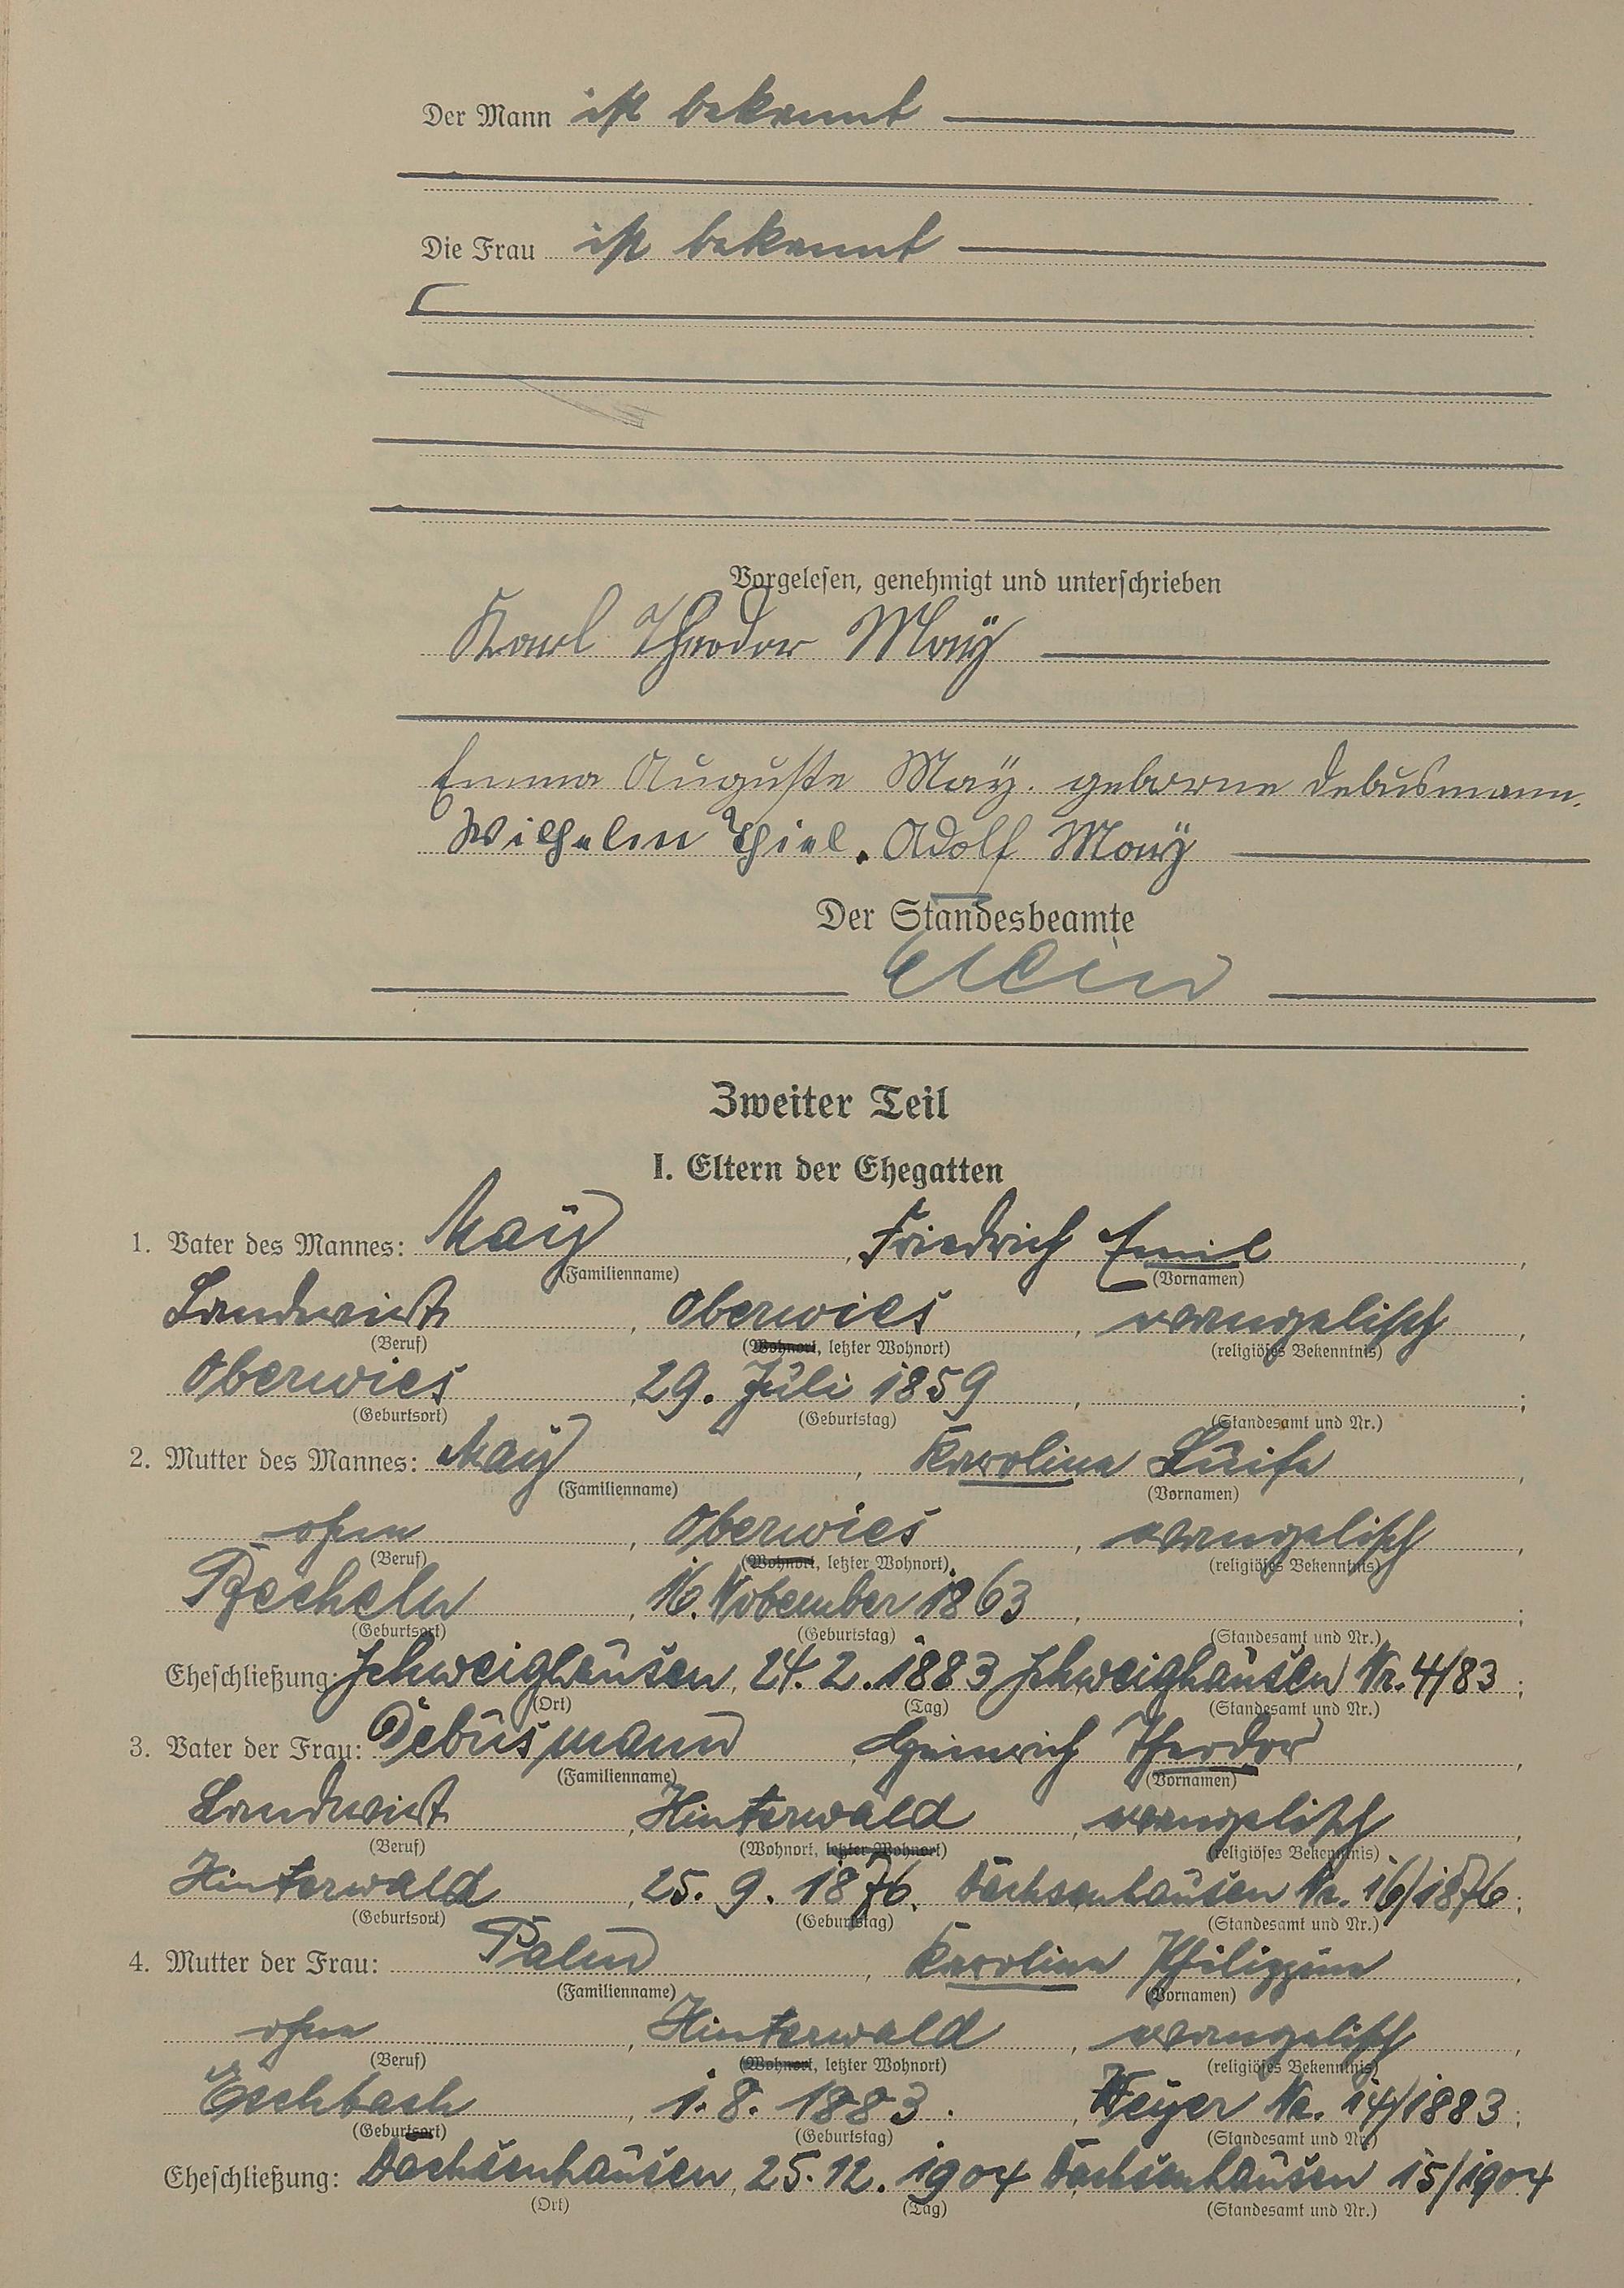 Der Mann ist bekannt
Die Frau ist bekannt
Vorgelesen, genehmigt und unterschrieben
Karl Theodor Maÿ
Emma Auguste Maÿ. geborene Debusmann.
Wilhelm Thiel. Adolf Maÿ
Der Standesbeamte
Klein
Zweiter Teil
I. Eltern der Ehegatten
1. Vater des Mannes: Maÿ, Friedrich Emil,
(Familienname) (Vornamen)
Landwirt, Oberwies, evangelisch,
(Beruf) (Wohnort, letzter Wohnort) (religiöses Bekenntnis)
Oberwies, 29. Juli 1859, ;
(Geburtsort) (Geburtstag) (Standesamt und Nr.)
2. Mutter des Mannes: Maÿ, Karoline Luise,
(Familienname) (Vornamen)
ohne, Oberwies, evangelisch,
(Beruf) (Wohnort, letzter Wohnort) (religiöses Bekenntnis)
Becheln, 16. November 1863, ;
(Geburtsort) (Geburtstag) (Standesamt und Nr.)
Eheschließung: Schweighausen, 24. 2. 1883 Schweighausen Nr. 4/83;
(Ort) (Tag) (Standesamt und Nr.)
3. Vater der Frau: Debusmann, Heinrich Theodor,
(Familienname) (Vornamen)
Landwirt, Hinterwald, evangelisch,
(Beruf) (Wohnort, letzter Wohnort) (religiöses Bekenntnis)
Hinterwald, 25. 9. 1876, Dachsenhausen Nr. 16/1876;
(Geburtsort) (Geburtstag) (Standesamt und Nr.)
4. Mutter der Frau: Palm, Karoline Philippine,
(Familienname) (Vornamen)
ohne, Hinterwald, evangelisch,
(Beruf) (Wohnort, letzter Wohnort) (religiöses Bekenntnis)
Eschbach, 1. 8. 1883., Weyer Nr. 14/1883;
(Geburtsort) (Geburtstag) (Standesamt und Nr.)
Eheschließung: Dachsenhausen, 25. 12. 1904 Dachsenhausen 15/1904
(Ort) (Tag) (Standesamt und Nr.)